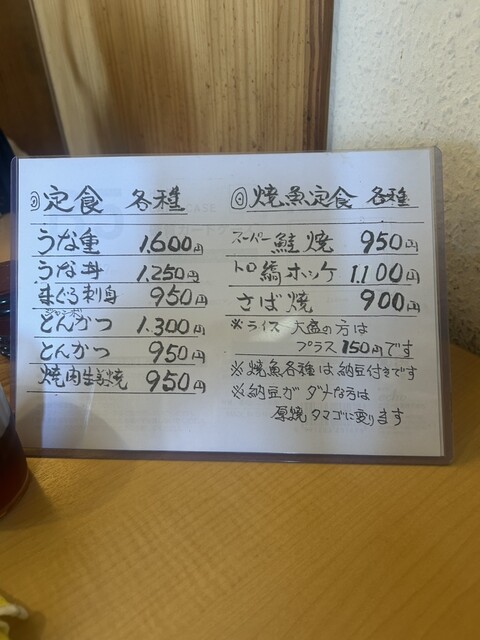 ◎定食 各種
うな重 1,600円
うな丼 1,250円
まぐろ刺身 950円
とんかつ 1,300円
とんかつ 950円
焼肉生姜焼 950円
◎焼魚定食 各種
スーパー鮭焼 950円
トロ縞ホッケ 1,100円
さば焼 900円
※ライス 大盛の方は
プラス150円です
※焼魚各種は納豆付きです
※納豆がダメな方は
厚焼タマゴに変ります